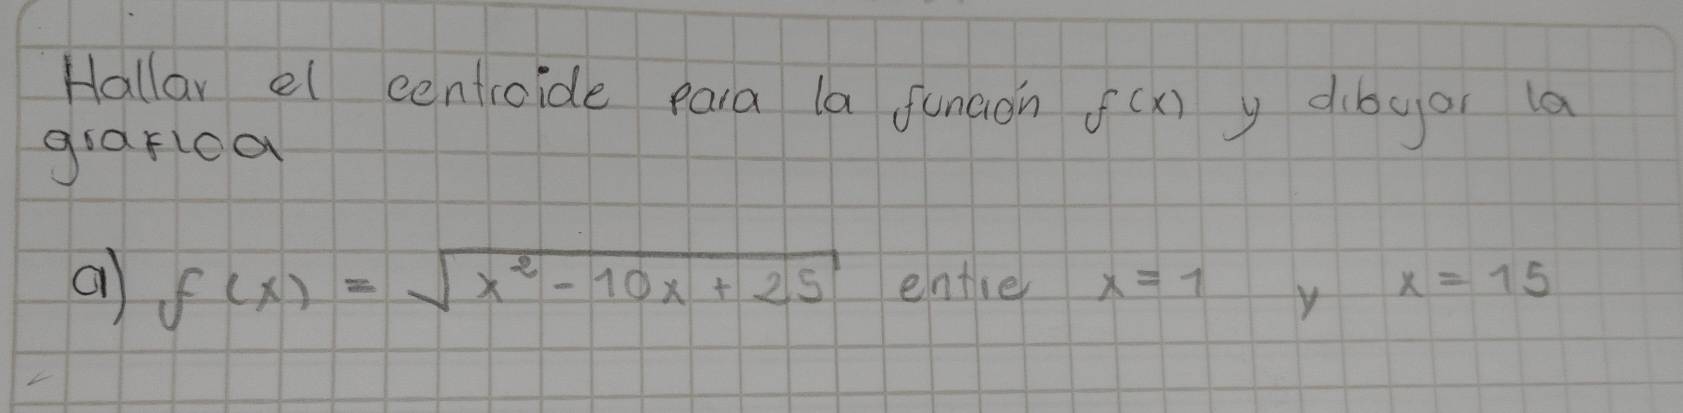 Hallar el centroide para la función f(x) y dibujar la
grafica
a) f(x) = √x² - 10x + 25 entre x = 1 y x = 15